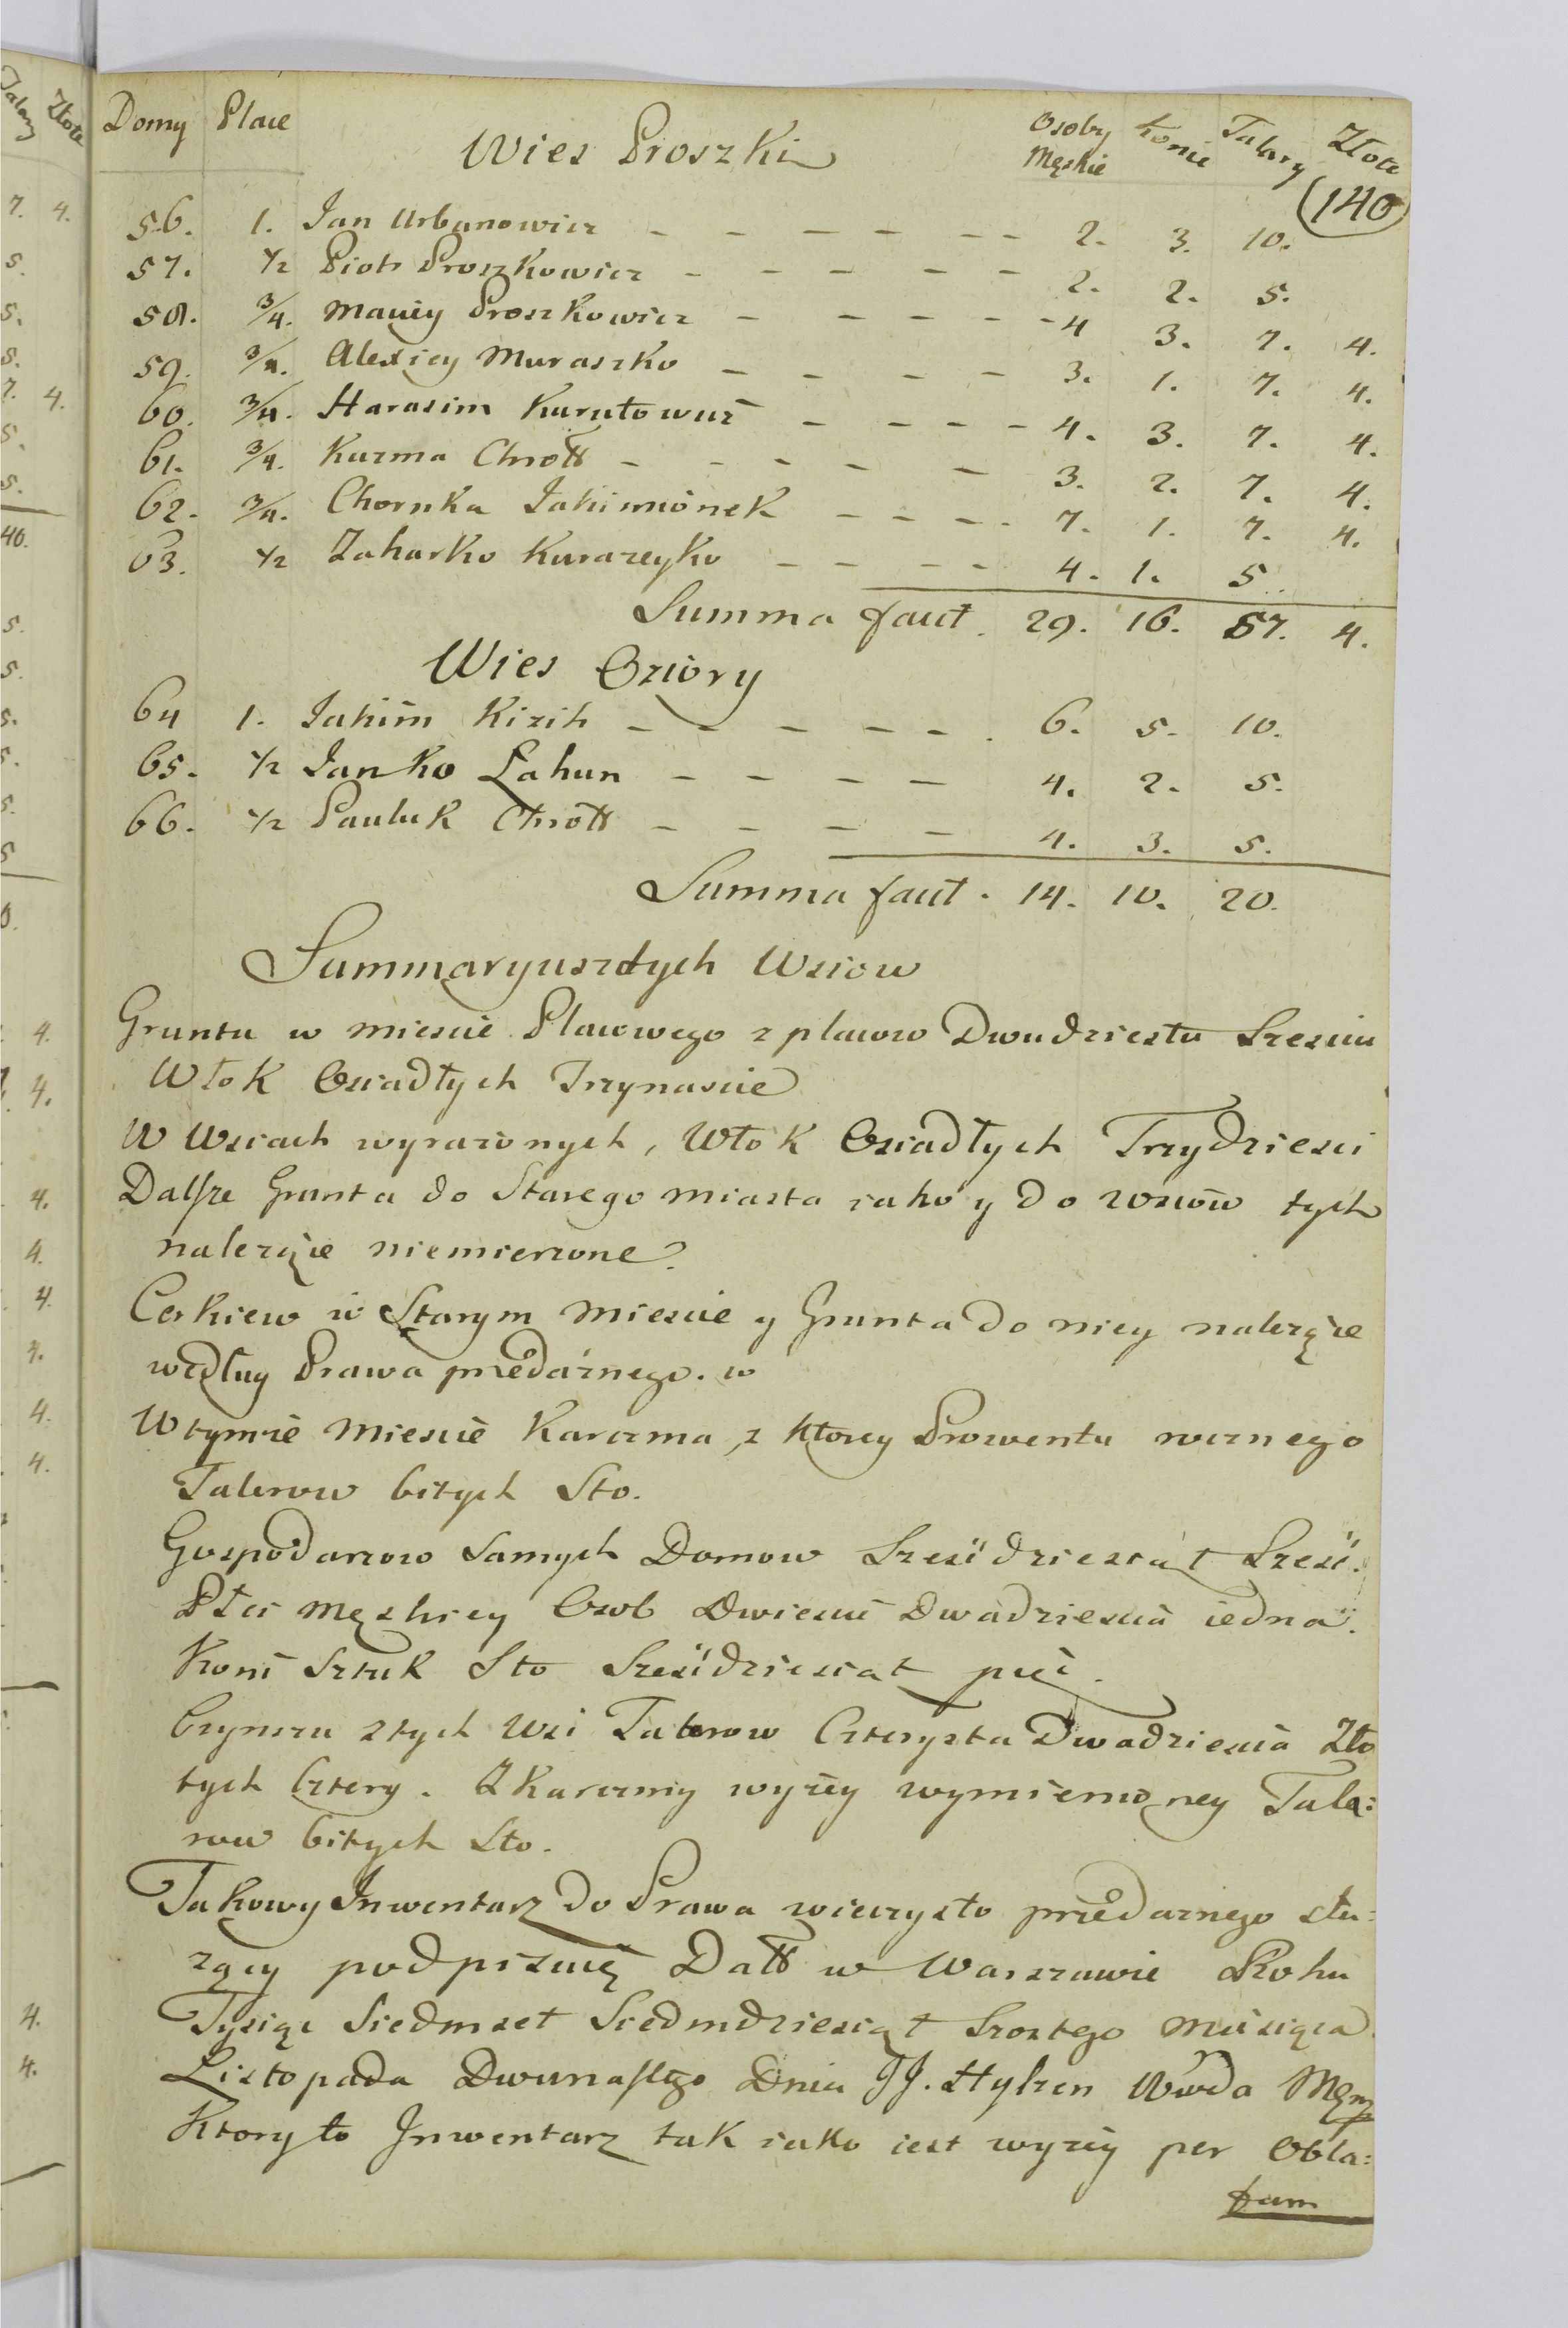 Domy Place Wies Proszki Osoby Męskie Konie Talary Złote
(140)
56. 1. Jan Urbanowicz - - - - - - 2. 3. 10.
57. 1/2 Piotr Proszkowicz - - - - - 2. 2. 5.
58. 3/4. Maciey Proszkowicz - - - - - 4 3. 7. 4.
59. 3/4. Alexiey Muraszko - - - - 3. 1. 7. 4.
60. 3/4. Harasim Kurułowicz - - - - 4. 3. 7. 4.
61. 3/4. Kuzma Chrołł - - - - - 3. 2. 7. 4.
62. 3/4. Chornka Jakimionek - - - - 7. 1. 7. 4.
63. 1/2 Zaharko Kurazeyko - - - - 4. 1. 5.
Summa facit. 29. 16. 57. 4.
Wies Oziory
64 1. Jakim Kizik - - - - - - 6. 5. 10.
65. 1/2 Janko Łahun - - - - 4. 2. 5.
66. 1/2 Pauluk Chrołł - - - - 4. 3. 5.
Summa facit. 14. 10. 20.
Summaryusz tych Wsiow
Gruntu w miescie Placowego z placow Dwudziestu Szesciu
Włok Osiadłych Trzynascie
W Wsiach wyrażonych, Włok Osiadłych Trzydziesci
Dalsze Grunta do Starego miasta iako y do wsiow tych
należące niemierzone.
Cerkiew w Starym Miescie y Grunta do niey należące
według Prawa przedażnego. w
W tymże Miescie Karczma, z ktorey Prowentu rocznego
Talerow bitych Sto.
Gospodarzow Samych Domow Sześćdziesiąt Sześć.
Płci męzkiey Osob Dwieście Dwadziescia iedna.
Koni Sztuk Sto Sześćdziesiąt pięć.
Czynszu z tych Wsi Talerow Czterysta Dwadziescia Zło
tych Cztery. Z Karczmy wyżey wymienioney Tala:
row bitych Sto.
Takowy Inwentarz do Prawa wieczysto przedażnego słu:
żący podpisuię Datt w Warszawie Roku
Tysiąc Siedmset Siedmdziesiąt Szostego Miesiąca
Listopada Dwunastego Dnia JJ. Hylzen Wwda
Ktory to Inwentarz tak iako iest wyżey per Obla:
tam